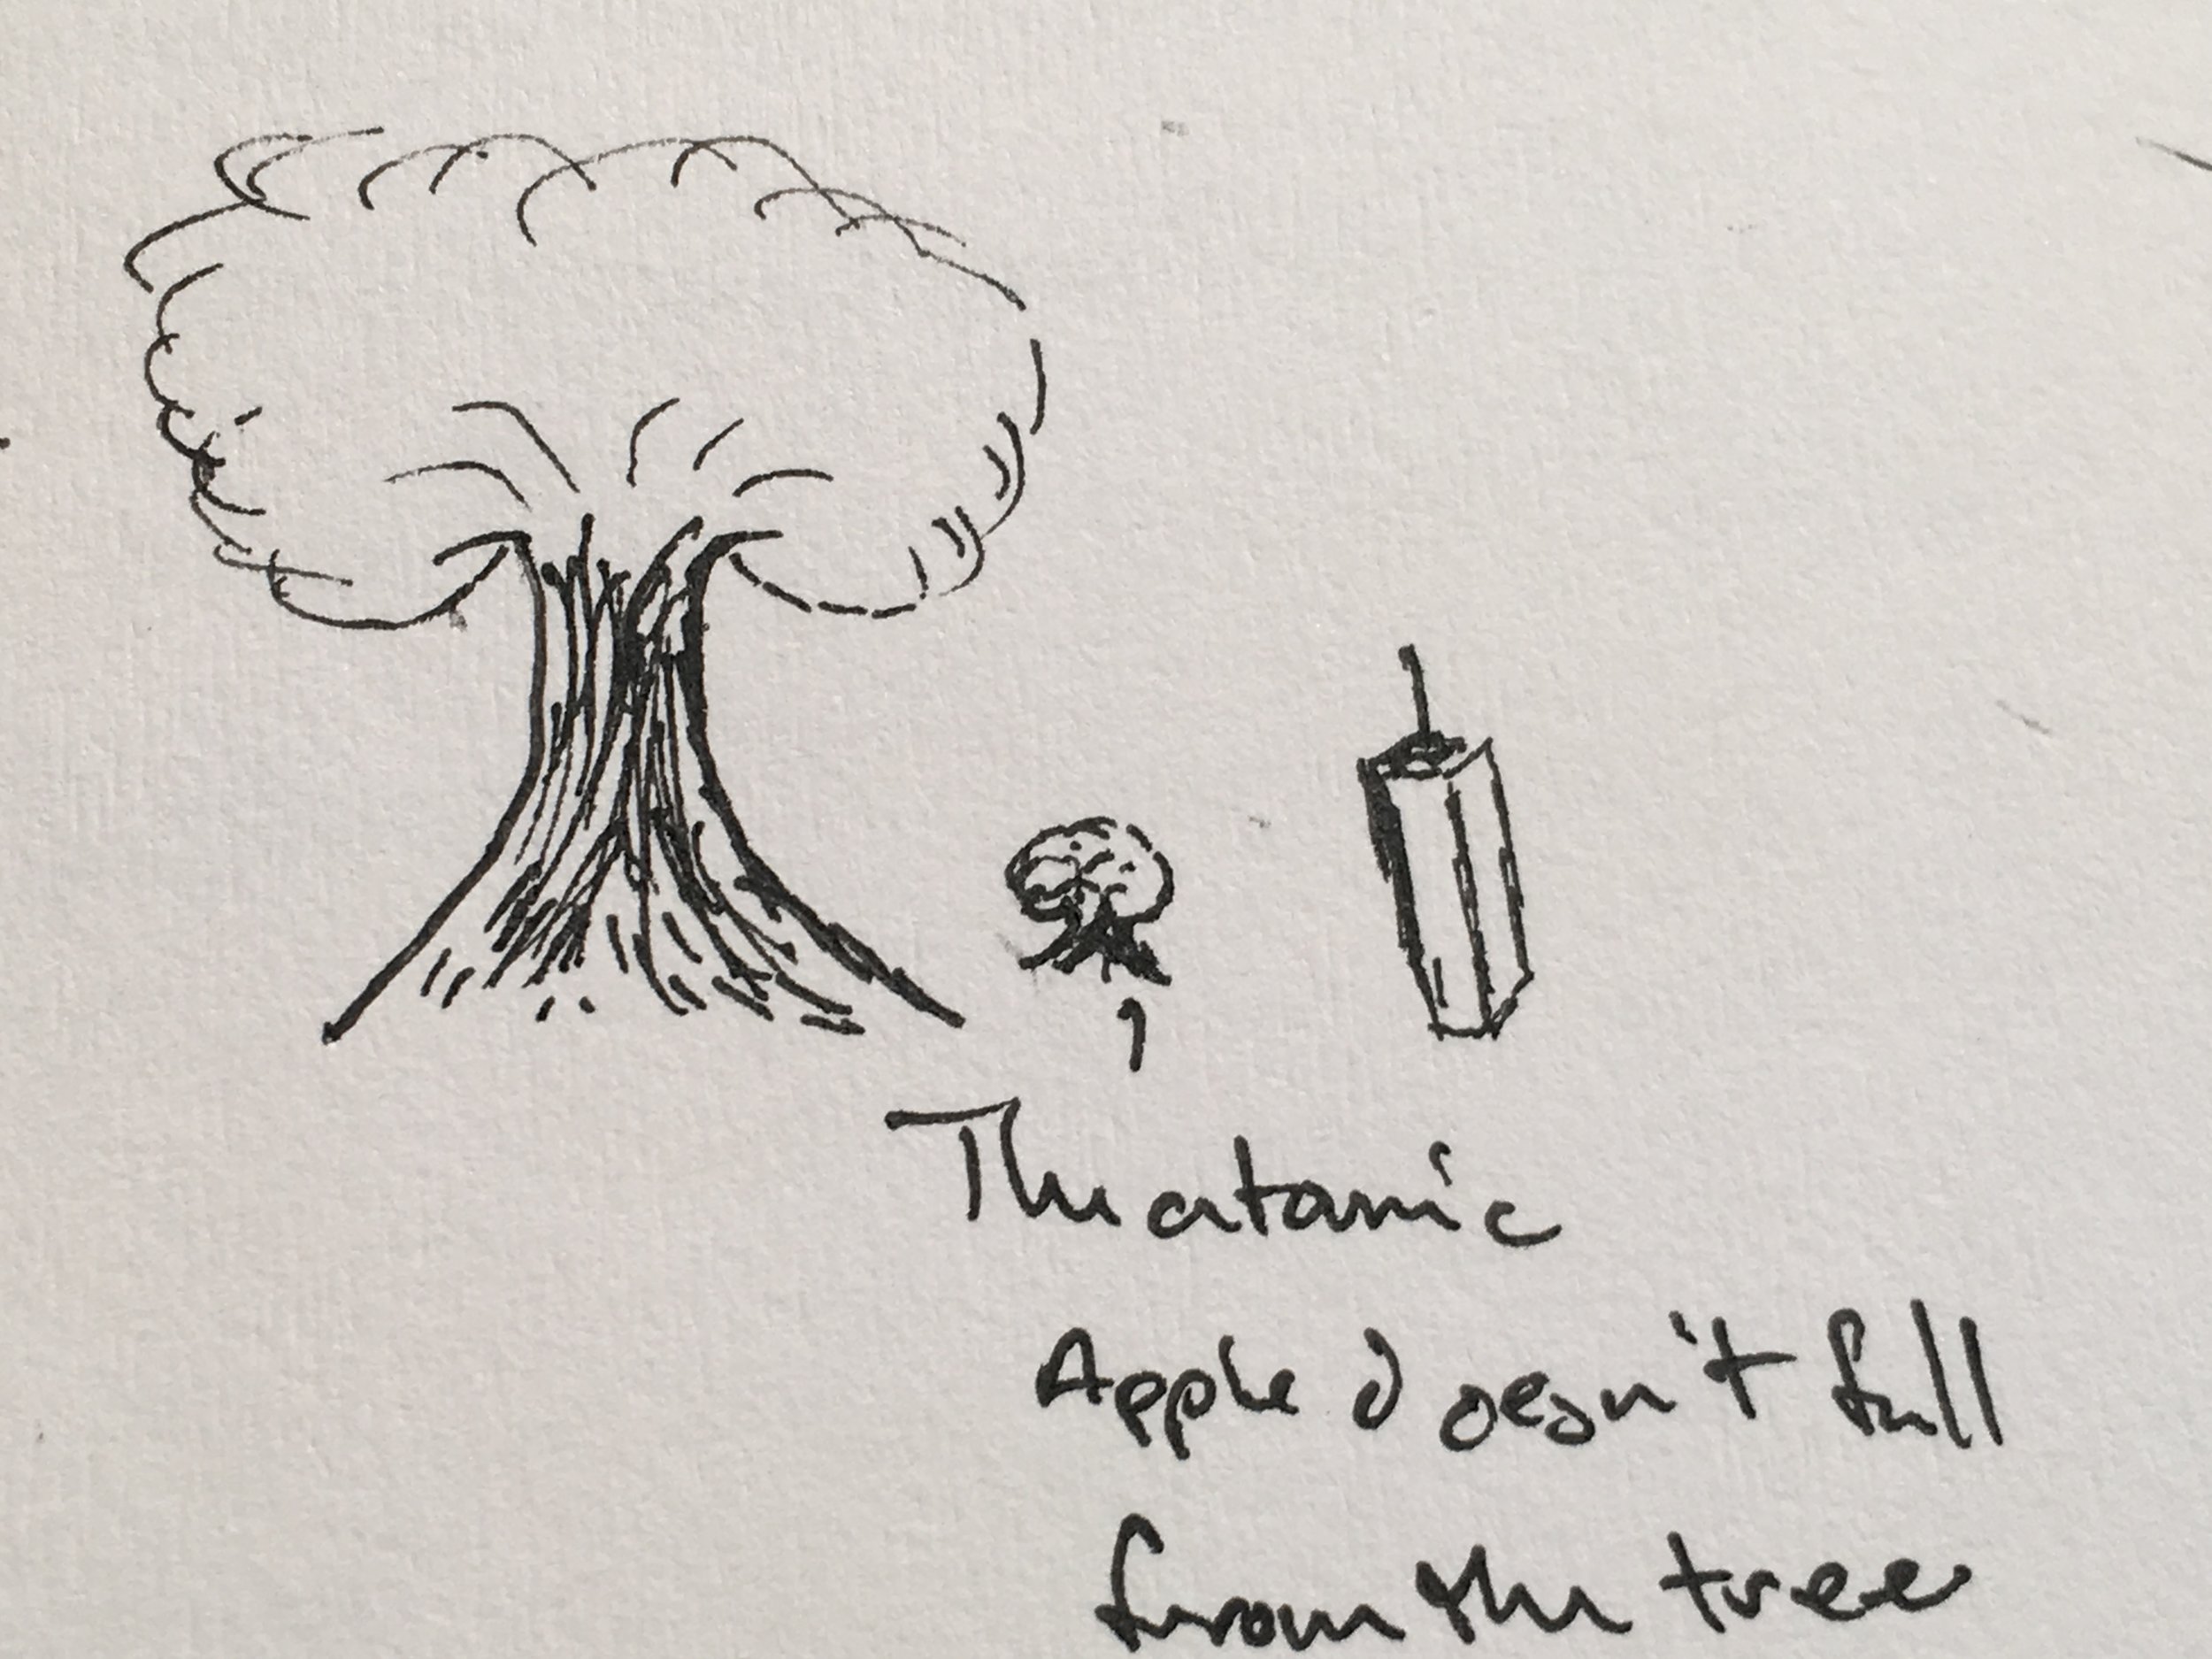 The atomic
Apple doesn't fall
from the tree